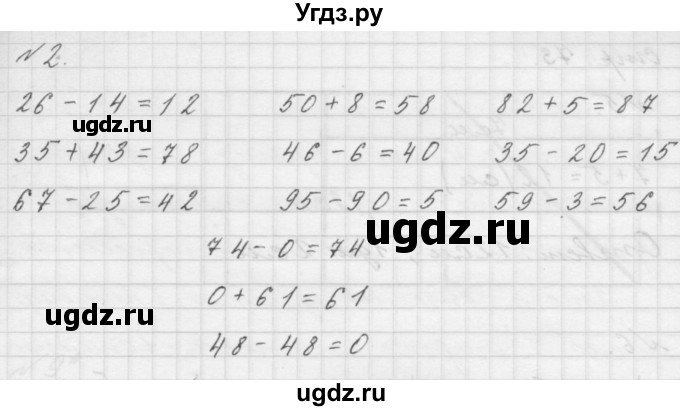 Угдз.ру
№2.
26 - 14 = 12 50 + 8 = 58 82 + 5 = 87
ugdz.ru
35 + 43 = 78 46 - 6 = 40 35 - 20 = 15
67 - 25 = 42 95 - 90 = 5 59 - 3 = 56
ugdz.ru
74 - 0 = 74
0 + 61 = 61
ugdz.ru
48 - 48 = 0
ugdz.ru